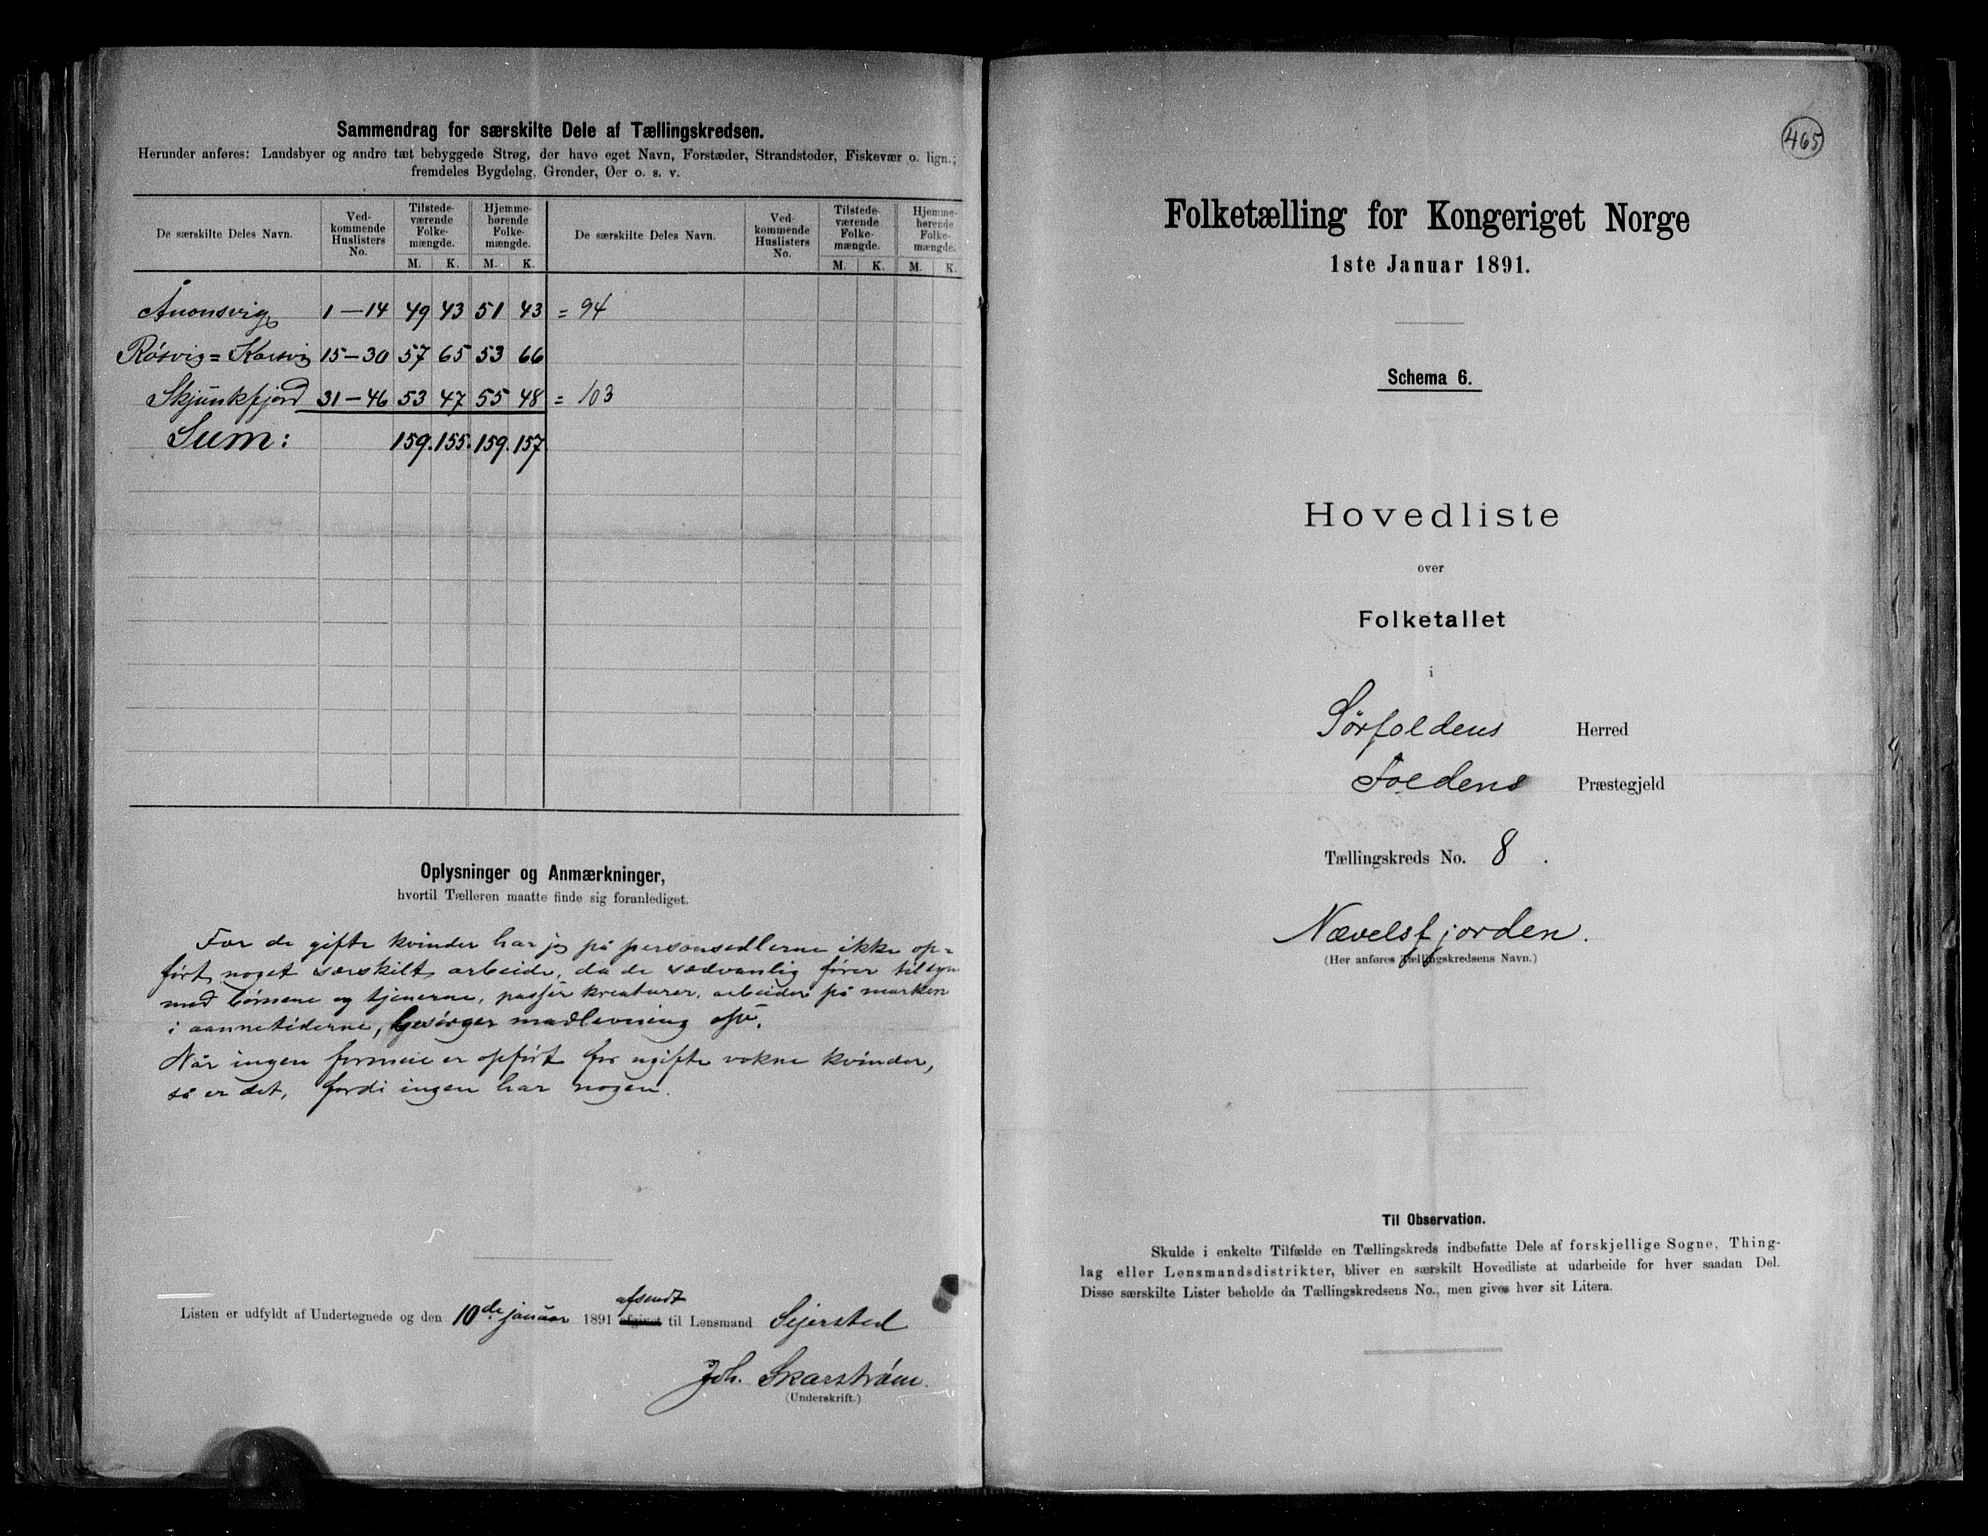 Sammendrag for særskilte Dele af Tællingskredsen.
Herunder anføres: Landsbyer og andre tæt bebyggede Strøg, der have eget Navn, Forstæder, Strandsteder, Fiskevær o. lign.;
fremdeles Bygdelag, Grender, Øer o. s. v.
De særskilte Deles Navn. Ved-kommende Huslisters No. Tilstede-værende Folke-mængde. Hjemme-hørende Folke-mængde. De særskilte Deles Navn. Ved-kommende Huslisters No. Tilstede-værende Folke-mængde. Hjemme-hørende Folke-mængde.
M. K. M. K. M. K. M. K.
Ånonsvig 1-14 49 43 51 43 = 94
Røsvig = Korsvig 15-30 57 65 53 66
Skjunkfjord 31-46 53 47 55 48 = 103
Sum: 159. 155. 159. 157.
Oplysninger og Anmærkninger,
hvortil Tælleren maatte finde sig foranlediget.
For de gifte kvinder har jeg på personsedlerne ikke op-
ført noget særskilt arbeide, da de sædvanlig fører tilsyn
med börnene og tjenerne, passer kreaturer, arbeider på marken
i aannetiderne, besörger madlavning osv.
Når ingen formue er opført for ugifte voksne kvinder,
så er det, fordi ingen har nogen.
Listen er udfyldt af Undertegnede og den 10de januar 1891 afgivet afsendt til Lensmand Sejersted
Joh. Skarstrøm.
(Underskrift.)
465
Folketælling for Kongeriget Norge
1ste Januar 1891.
Schema 6.
Hovedliste
over
Folketallet
i
Sørfoldens Herred
Foldens Præstegjeld
Tællingskreds No. 8.
Nævelsfjorden.
(Her anføres Tællingskredsens Navn.)
Til Observation.
Skulde i enkelte Tilfælde en Tællingskreds indbefatte Dele af forskjellige Sogne, Thing-
lag eller Lensmandsdistrikter, bliver en særskilt Hovedliste at udarbeide for hver saadan Del.
Disse særskilte Lister beholde da Tællingskredsens No., men gives hver sit Litera.